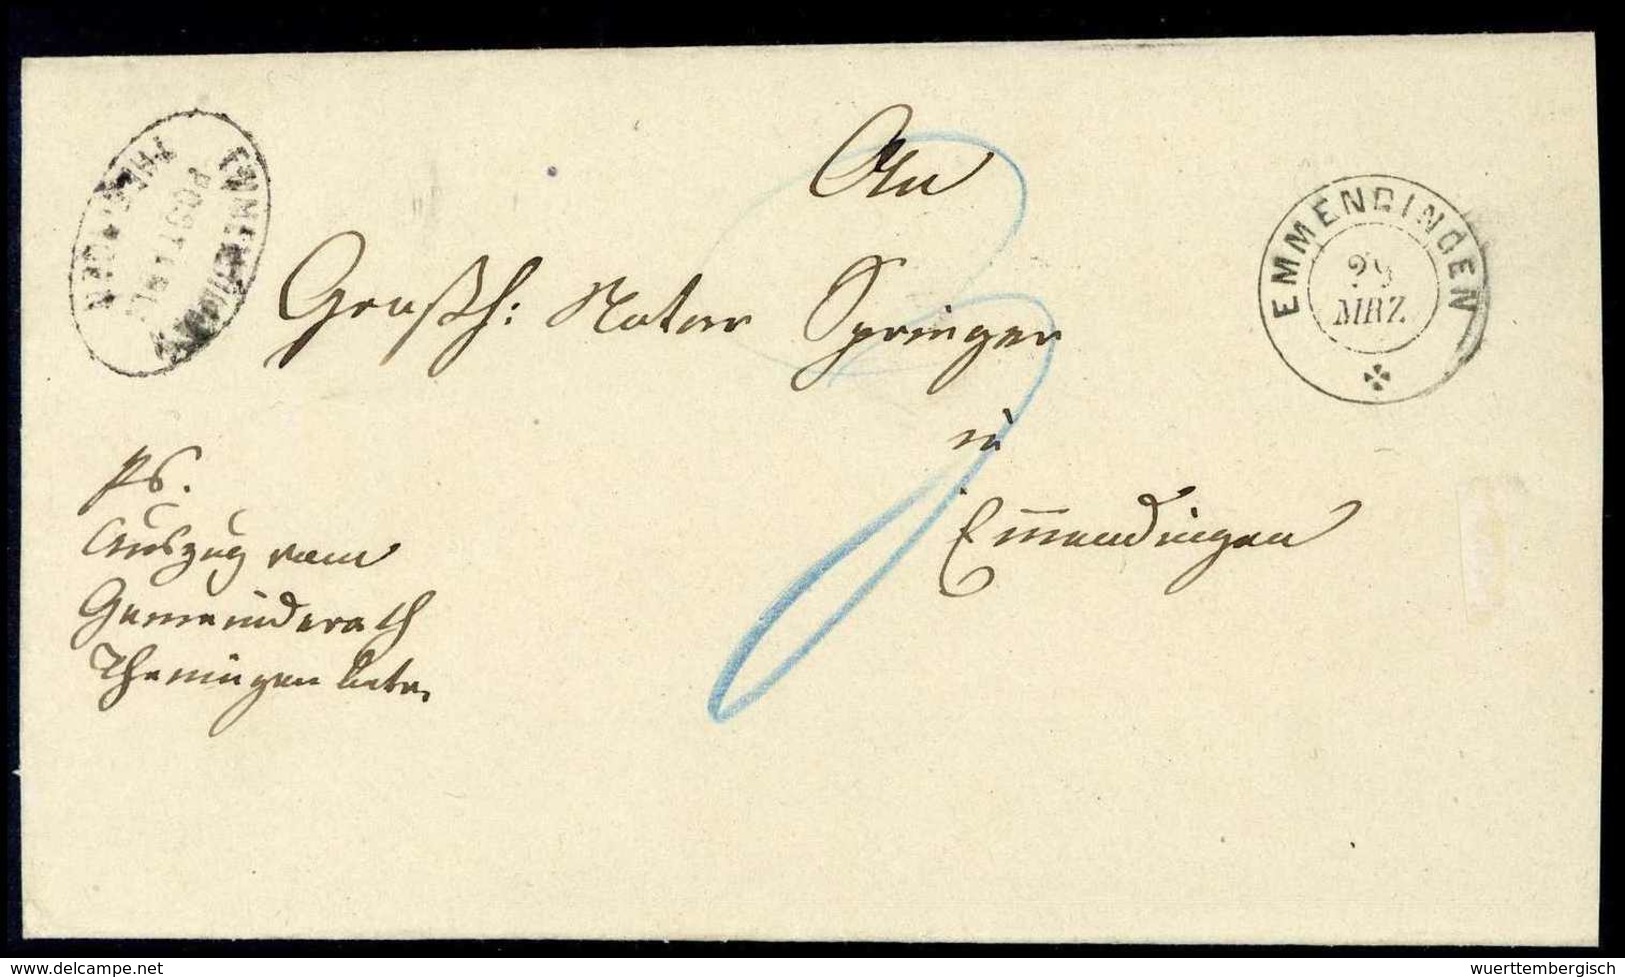 EMMENDINGEN
POSTABL
An
Großh: Notar Springer
in
Emmendingen
EMMENDINGEN
29
MRZ
PS.
Auszug vom
Gemeinderath
Theningen
wuerttembergisch